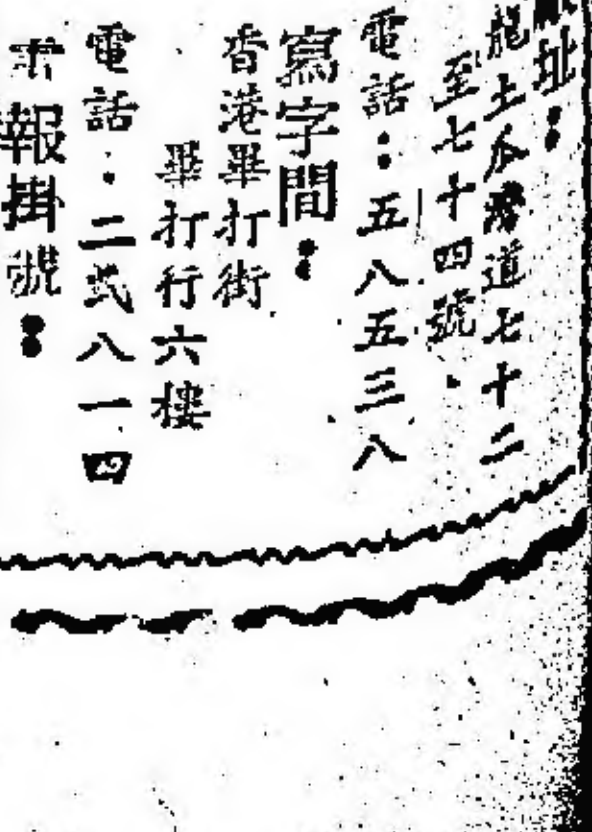 址：
龍土瓜灣道七十二
至七十四號．
電話：五八五三八
寫字間：
香港畢打街
畢打行六樓
電話：二弍八一四
報掛號：